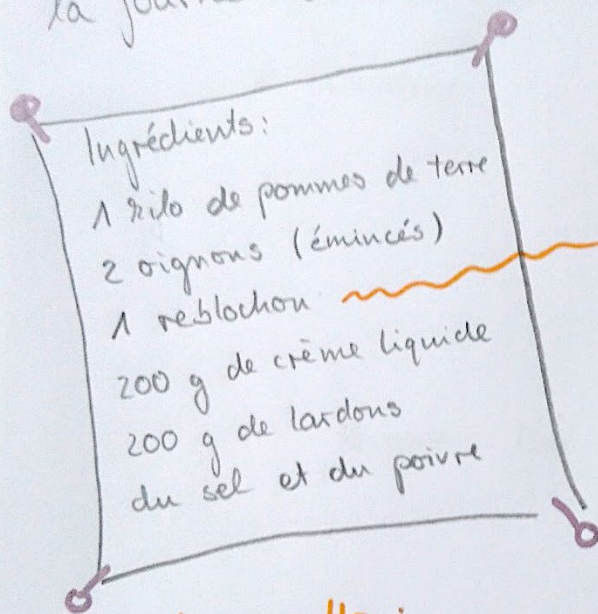 la
Ingrédients:
1 kilo de pommes de terre
2 oignons (émincés)
1 reblochon
200 g de crème liquide
200 g de lardons
du sel et du poivre